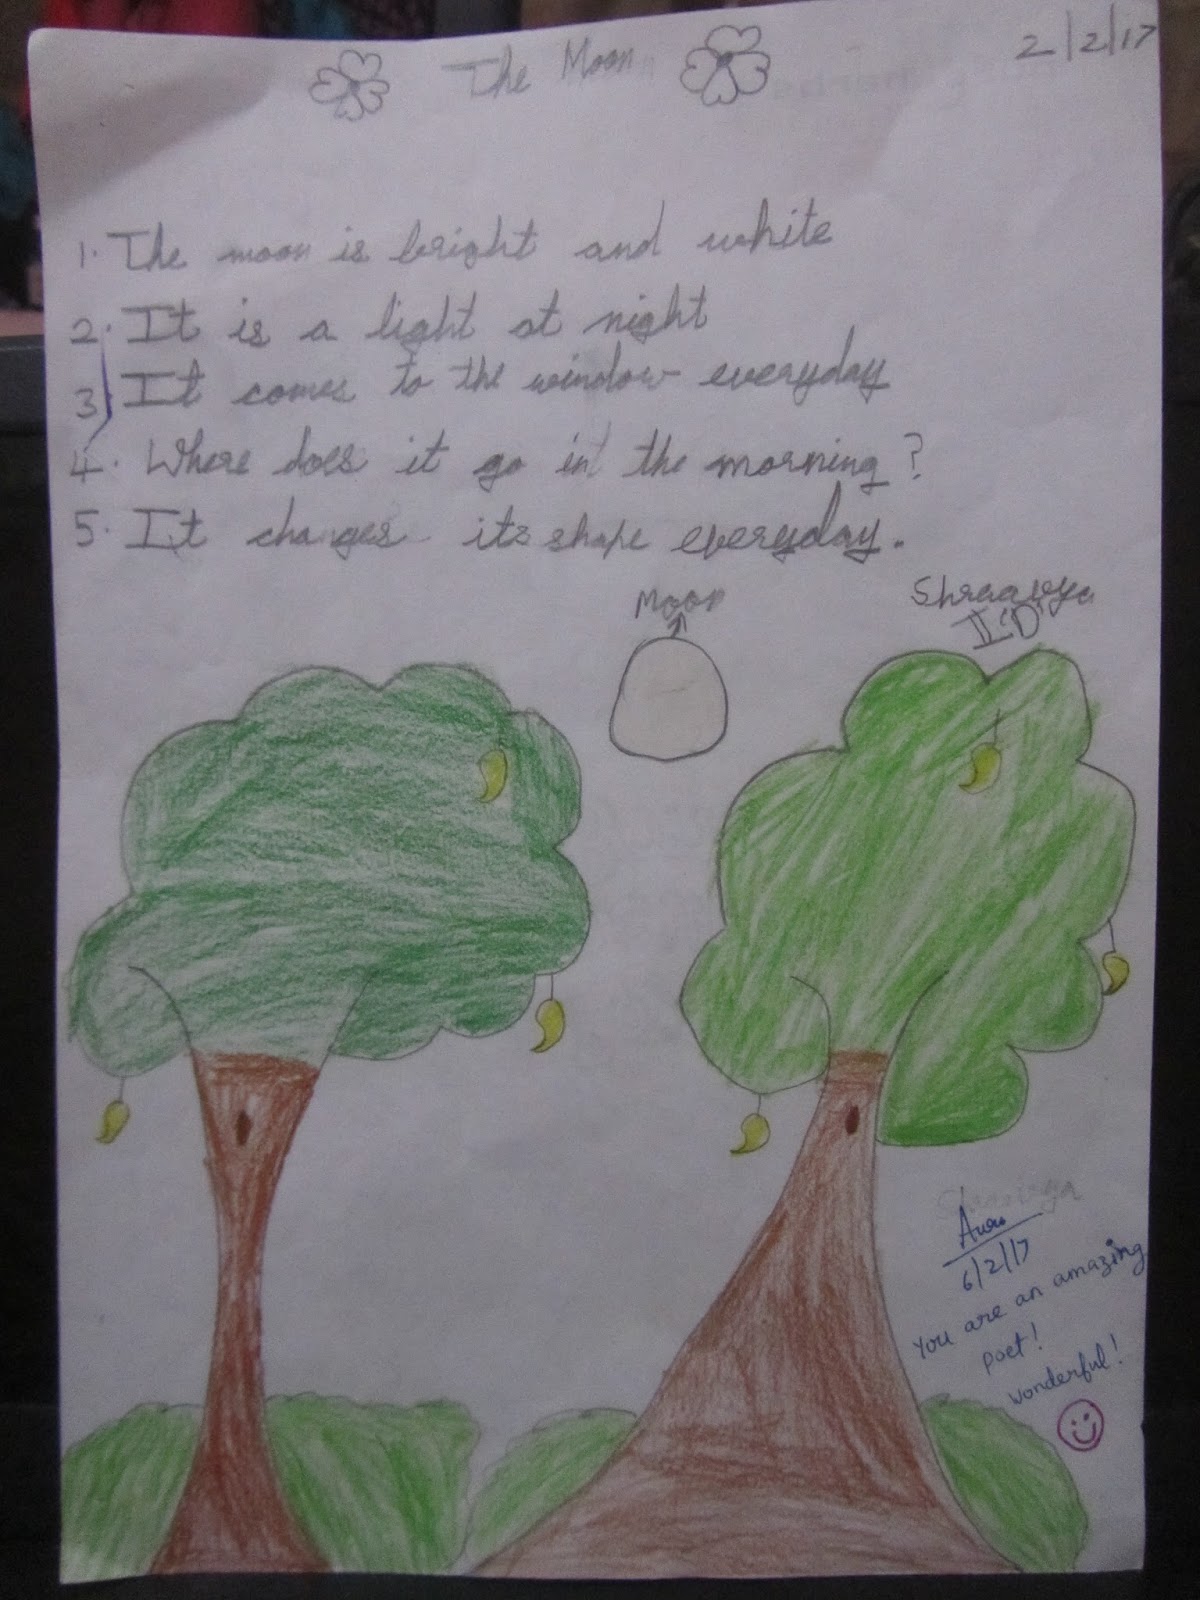 The Moon
2/2/17
1. The moon is bright and white
2. It is a light at night
3. It comes to the window everyday
4. Where does it go in the morning?
5. It changes its shape everyday.
Moon
Shraavya
II 'D'
Shraavya
6/2/17
You are an amazing
poet!
Wonderful!